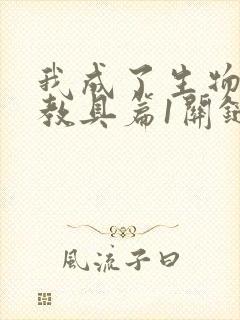 我成了生物
教具篇1關鍵
風流子曰